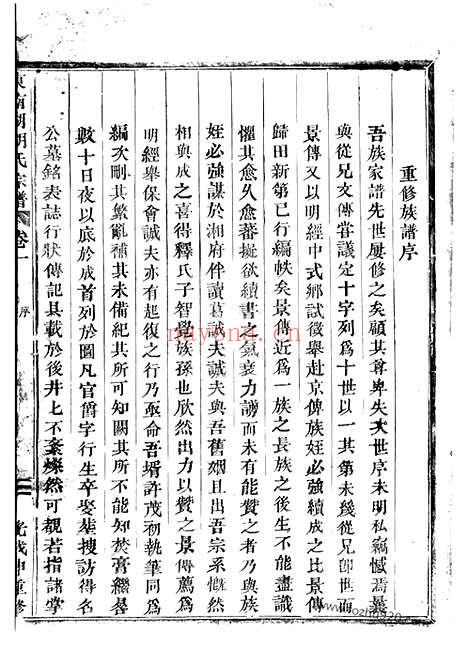 重修族譜序
吾族家譜先世屢修之矣顧其尊卑失次世序未明私竊憾焉曩
與從兄文傳嘗議定十字列爲十世以一其第未幾從兄卽世而
景傳又以明經中式鄉試徵舉赴京俾族姪必強續成比景傳
歸田新第已行編帙矣景傳近爲一族之長族之後生不能盡識
懼其愈久愈蕃擬欲續書以氣衰力謭而未有能贊之者乃與族
姪必強謀於湘府伴讀葛誠夫誠夫與吾舊姻且出吾宗系慨然
相與成之喜得釋氏子智學族孫也欣然出力以贊之景傳薦爲
明經舉保會誠夫亦有起復之行乃亟命吾壻許茂初執筆同爲
編次刪其繁亂補其未備紀其所可知闕其所不能知焚膏繼晷
數十日夜以底於成首列於圖凡官爵字行生卒娶墓搜訪得名
公墓銘表誌行狀傳記具載於後井上不紊燦然可覩若指諸掌
東南湖胡氏宗譜
卷一
序
光戊申重修
nayona.cn